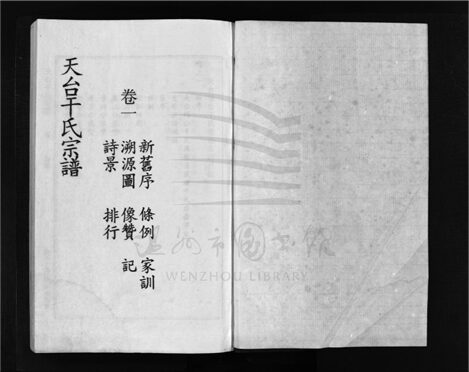 天台干氏宗譜
卷一
新舊序 條例 家訓
溯源圖 像贊 記
詩景 排行
温州市图书馆
WENZHOU LIBRARY